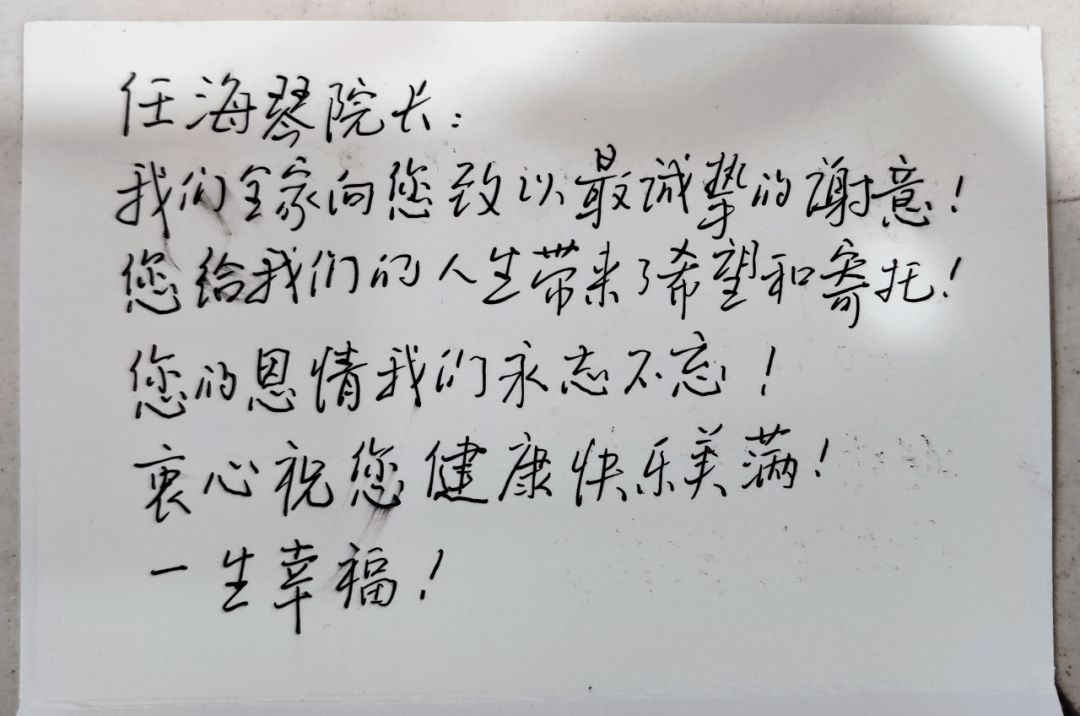 任海琴院长：
我们全家向您致以最诚挚的谢意！
您给我们的人生带来了希望和寄托！
您的恩情我们永志不忘！
衷心祝您健康快乐美满！
一生幸福！